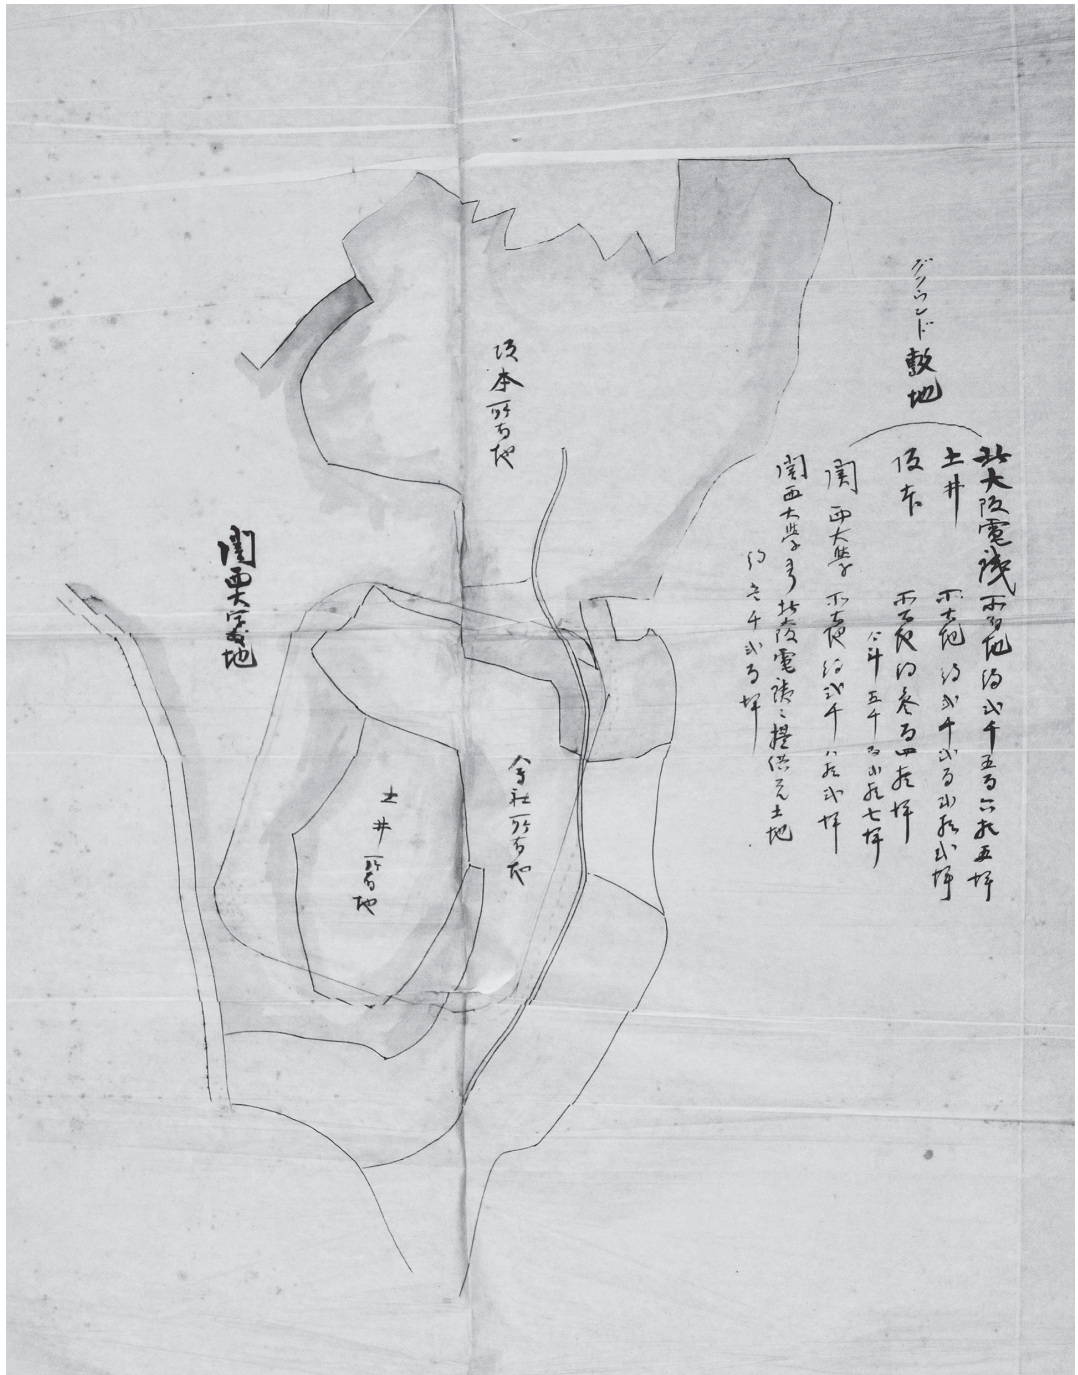 グラウンド敷地
北大阪電鉄所有地約弐千五百六拾五坪
土井 所有地 約弐千弐百弐拾弐坪
坂本 所有地約参百四拾坪
公斗五千百弐拾七坪
関西大学 所有地約弐千八拾弐坪
関西大学ヨリ北阪電鉄ニ提供スル土地
約壱千弐百坪
坂本所有地
関西大学敷地
会社所有地
土井所有地